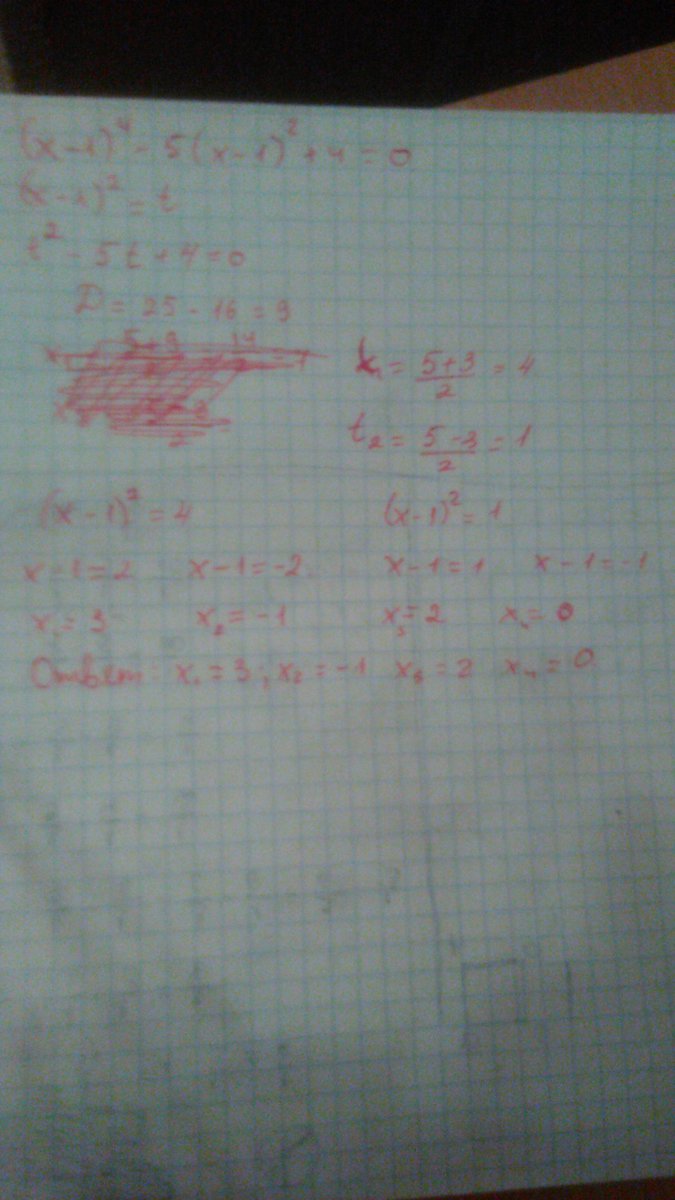 (x-1)⁴ - 5(x-1)² + 4 = 0
(x-1)² = t
t² - 5t + 4 = 0
D = 25 - 16 = 9
t₁ = (5+3)/2 = 4
t₂ = (5-3)/2 = 1
(x-1)² = 4 (x-1)² = 1
x-1=2 x-1=-2 x-1=1 x-1=-1
x₁=3 x₂=-1 x₃=2 x₄=0
Ответ: x₁=3; x₂=-1 x₃=2 x₄=0